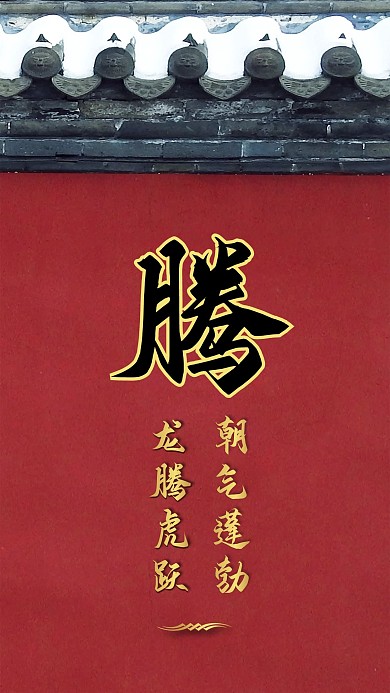 腾
朝气蓬勃
龙腾虎跃